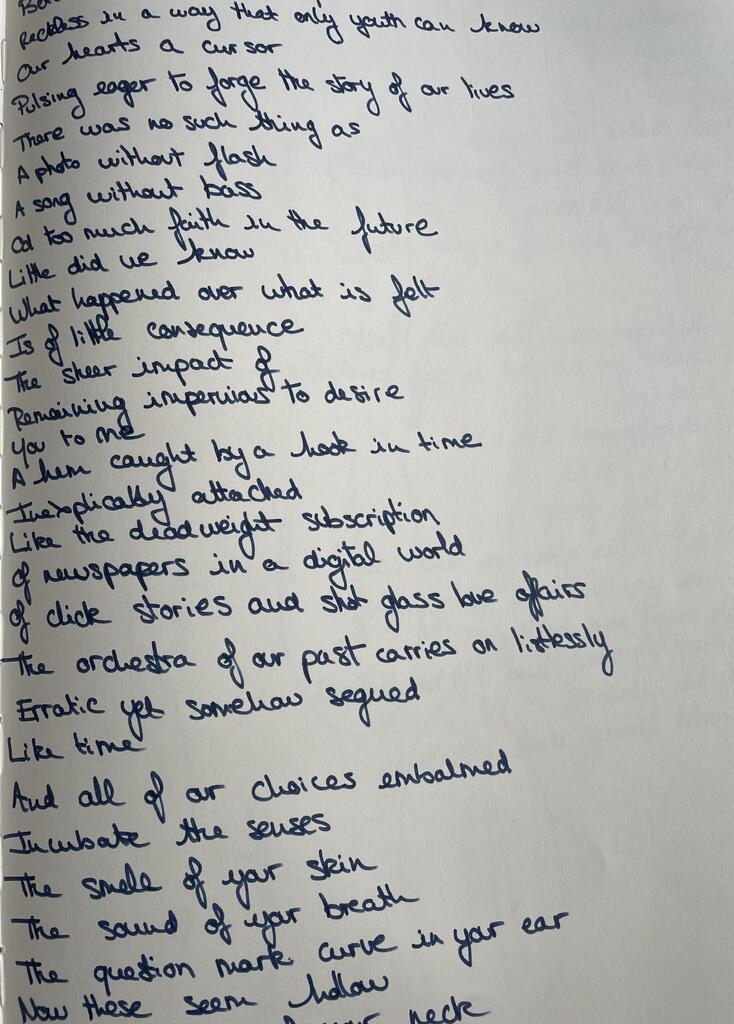 Reckless in a way that only youth can know
Our hearts a cursor
Pulsing eager to forge the story of our lives
There was no such thing as
A photo without flash
A song without bass
Or too much faith in the future
Little did we know
What happened over what is felt
Is of little consequence
The sheer impact of
Remaining impervious to desire
You to me
A hem caught by a hook in time
Inexplicably attached
Like the deadweight subscription
Of newspapers in a digital world
Of click stories and shot glass love affairs
The orchestra of our past carries on listlessly
Erratic yet somehow segued
Like time
And all of our choices embalmed
Incubate the senses
The smell of your skin
The sound of your breath
The question mark curve in your ear
Now these seem hollow
your neck